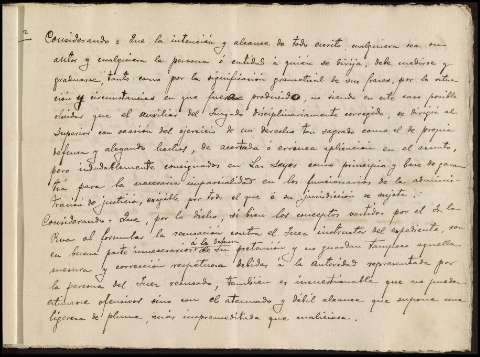 2
Considerando = Que la intención y alcance de todo escrito, cualquiera sea su
autor y cualquiera la persona ó entidad á quien se dirija, debe medirse y
graduarse, tanto como por la significación gramatical de sus frases, por la situa-
ción y circunstancias en que fuere producido, no siendo en este caso posible
olvidar que el Auxiliar del Juzgado disciplinariamente corregido, se dirigió al
Superior con ocasión del ejercicio de un derecho tan sagrado como el de propia
defensa y alegando hechos, de acertada ó errónea aplicación en el asunto,
pero indudablemente consignados en las Leyes como principio y base de garan-
tía para la necesaria imparcialidad en los funcionarios de la administ-
tración de justicia, exigible por todo el que á su jurisdicción se sujeta.
Considerando = Que, por lo dicho, si bien los conceptos vertidos por el Sr. la
Riva al formular la recusación contra el Juez instructor del expediente, son
en buena parte innecesarios á la defensa de su pretensión y no guardan tampoco aquella
mesura y corrección respetuosa debidas á la Autoridad representada por
la persona del Juez recusado, también es incuestionable que no pueden
estimarse ofensivos sino con el atenuado y débil alcance que supone una
ligereza de pluma, más impremeditada que maliciosa.